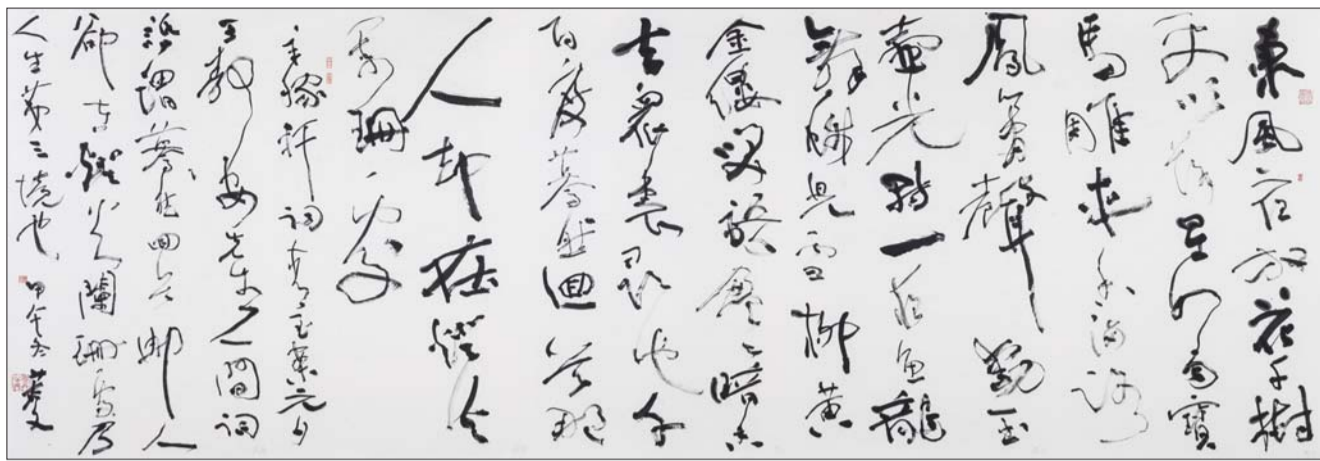 東風夜放花千樹
更吹落星如雨寶
馬雕車香滿路
鳳簫聲動玉
壺光轉一夜魚龍
舞蛾兒雪柳黃
金縷笑語盈盈暗香
去眾裏尋他千
百度驀然迴首那
人却在燈火
闌珊處
辛稼軒詞青玉案元夕
王静安先生人間詞
話謂驀然回首那人
卻在燈火闌珊處乃
人生第三境也 甲午冬